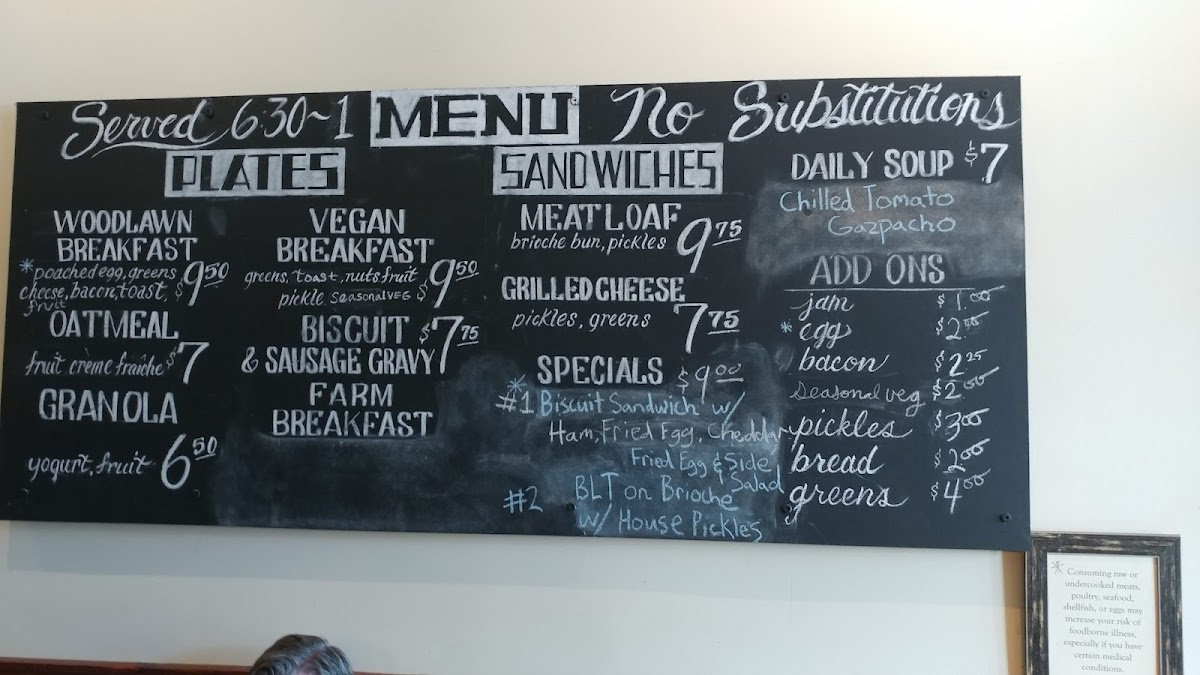 Served 6:30~1 MENU No Substitutions
PLATES
WOODLAWN
BREAKFAST
*poached egg, greens
cheese, bacon, toast,
fruit
$9.50
OATMEAL
fruit crème fraîche $7
GRANOLA
yogurt, fruit 6.50
VEGAN
BREAKFAST
greens, toast, nuts fruit
pickle seasonal veg $9.50
BISCUIT $7.75
& SAUSAGE GRAVY
FARM
BREAKFAST
SANDWICHES
MEATLOAF
brioche bun, pickles 9.75
GRILLED CHEESE
pickles, greens 7.75
SPECIALS $9.00
*
#1 Biscuit Sandwich w/
Ham, Fried Egg, Cheddar
Fried Egg & Side
Salad
#2 BLT on Brioche
w/ House Pickles
DAILY SOUP $7
Chilled Tomato
Gazpacho
ADD ONS
jam $1.00
*egg $2.00
bacon $2.25
seasonal veg $2.00
pickles $3.00
bread $2.00
greens $4.00
* Consuming raw or
undercooked meats,
poultry, seafood,
shellfish, or eggs may
increase your risk of
foodborne illness,
especially if you have
certain medical
conditions.